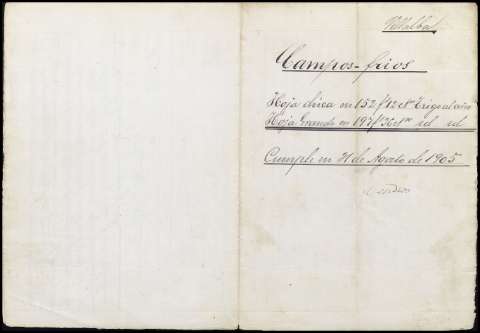 Villalba
Campos-frios
Hoja chica en 152 fs 12 cs Trigo al año
Hoja Grande en 197 fs 36 cs id id
Cumple en de Agosto de 1905